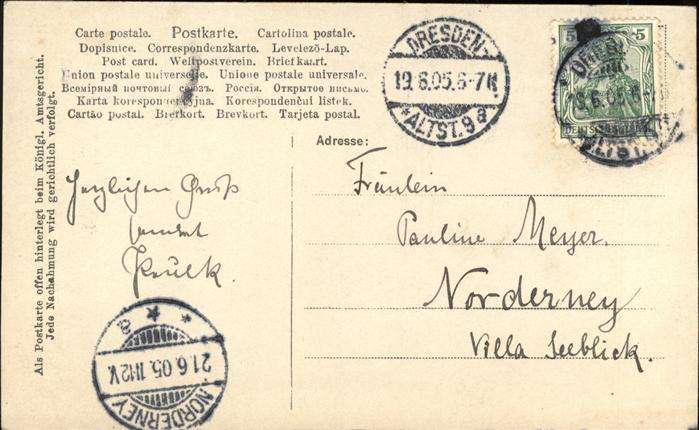 Carte postale. Postkarte. Cartolina postale.
Dopisnice. Correspondenzkarte. Levelező-Lap.
Post card. Weltpostverein. Briefkaart.
Union postale universelle. Unione postale universale.
Всемірный почтовый союзъ. Россія. Открытое письмо.
Karta korespondencyjna. Korespondenční listek.
Cartão postal. Brevkort. Brevkort. Tarjeta postal.
Als Postkarte offen hinterlegt beim Königl. Amtsgericht.
Jede Nachahmung wird gerichtlich verfolgt.
DRESDEN-
19.6.05.6-7N
*ALTST.9a
5 5
DRESDEN
19.6.05.6-7N
ALTST.
Adresse:
Herzlichen Gruß
sendet
Fräulein
Pauline Meyer.
Norderney
Villa Seeblick.
* * a
21.6.05.11-12V.
NORDERNEY